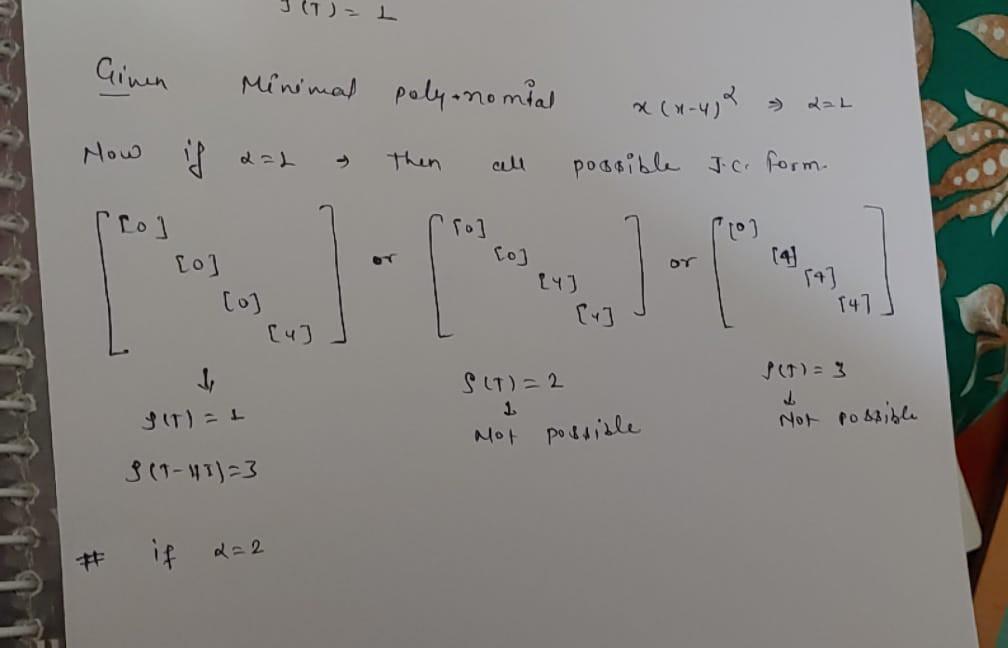 ρ(T) = 1
Given Minimal poly-nomial x(x-4)^α ⇒ α=1
Now if α=1 → then all possible J.C. form.
[0] [0] [0]
[0] or [0] or [4]
[0] [4] [4]
[4] [4] [4]
↓ ρ(T) = 2 ρ(T) = 3
ρ(T) = 1 ↓ ↓
Not possible Not possible
ρ(T-4I)=3
# if α=2